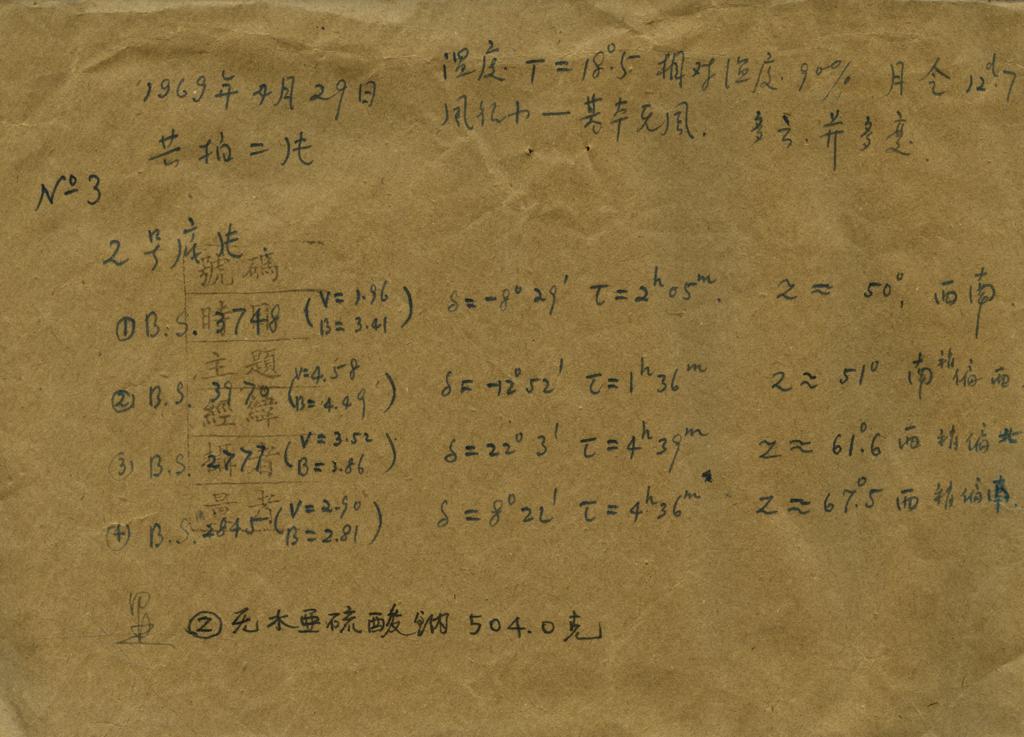 1969年4月29日
温度 T=18°.5 相对湿度 90% 月令 12d.7
风很小—基本无风. 多云.并多变.
共拍二片
No 3
2号底片
號碼
① B.S. 3748 (V=1.96 B=3.41) δ=-8°29′ τ=2h05m. Z≈50°, 西南
主題
② B.S. 3970 (V=4.58 B=4.49) δ=-12°52′ τ=1h36m Z≈51° 南稍偏西
經緯
③ B.S. 2777 (V=3.52 B=3.86) δ=22°3′ τ=4h39m Z≈61°.6 西稍偏北
④ B.S. 2845 (V=2.90 B=2.81) δ=8°22′ τ=4h36m Z≈67°.5 西稍偏南.
② 无水亜硫酸钠 504.0克